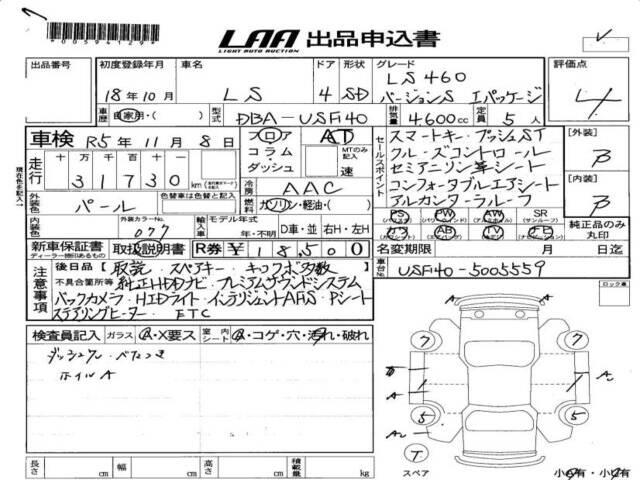 *0059412 9*
LAA 出品申込書
LIGHT AUTO AUCTION
出品番号 初度登録年月 車名 ドア 形状 グレード 評価点
18年10月 LS 4 SD LS460 バージョンS Iパッケージ 4
車歴 自家用・( ) 型式 DBA-USF40 排気量 4600cc 定員 5人
車検 R5年11月8日
フロア コラム・ダッシュ AT MTのみ記入 速
セールスポイント
スマートキー・プッシュST
クルーズコントロール
セミアニリン革シート
コンフォータブルエアシート
アルカンターラルーフ
[外装] B
[内装] B
走行 十万 万 千 百 十 一
31730 km
冷房 AAC
外装色 パール 色替車は色替と記入
燃料 ガソリン・軽油・( )
内装色 外装カラーNo. 077 輸入車 モデル年式 年・不明 D車・並 右H・左H
PS AW PW SR
カワ AB TV ナビ
純正品のみ丸印
新車保証書 取扱説明書 R券 ¥18,500
ディーラー捺印あるもの
名変期限 月 日迄
車台No. USF40-5005559
注意事項 後日品 取説・スペアキー・キコフボ多数
不具合箇所等 純正HDDナビ・プレミアムサウンドシステム
バックカメラ・HIDライト・インテリジェントAFS・Pシート
ステアリングヒーター・ETC
ロック車
検査員記入 ガラス A・X要ス 室内シート A・コゲ・穴・汚れ・破れ
ダッシュケル・ベたつき
ホイルA
7 7
B A A
A
5 5
A
T
スペア
長さ cm 幅 cm 高さ cm 積載量 kg
現在色を記入→